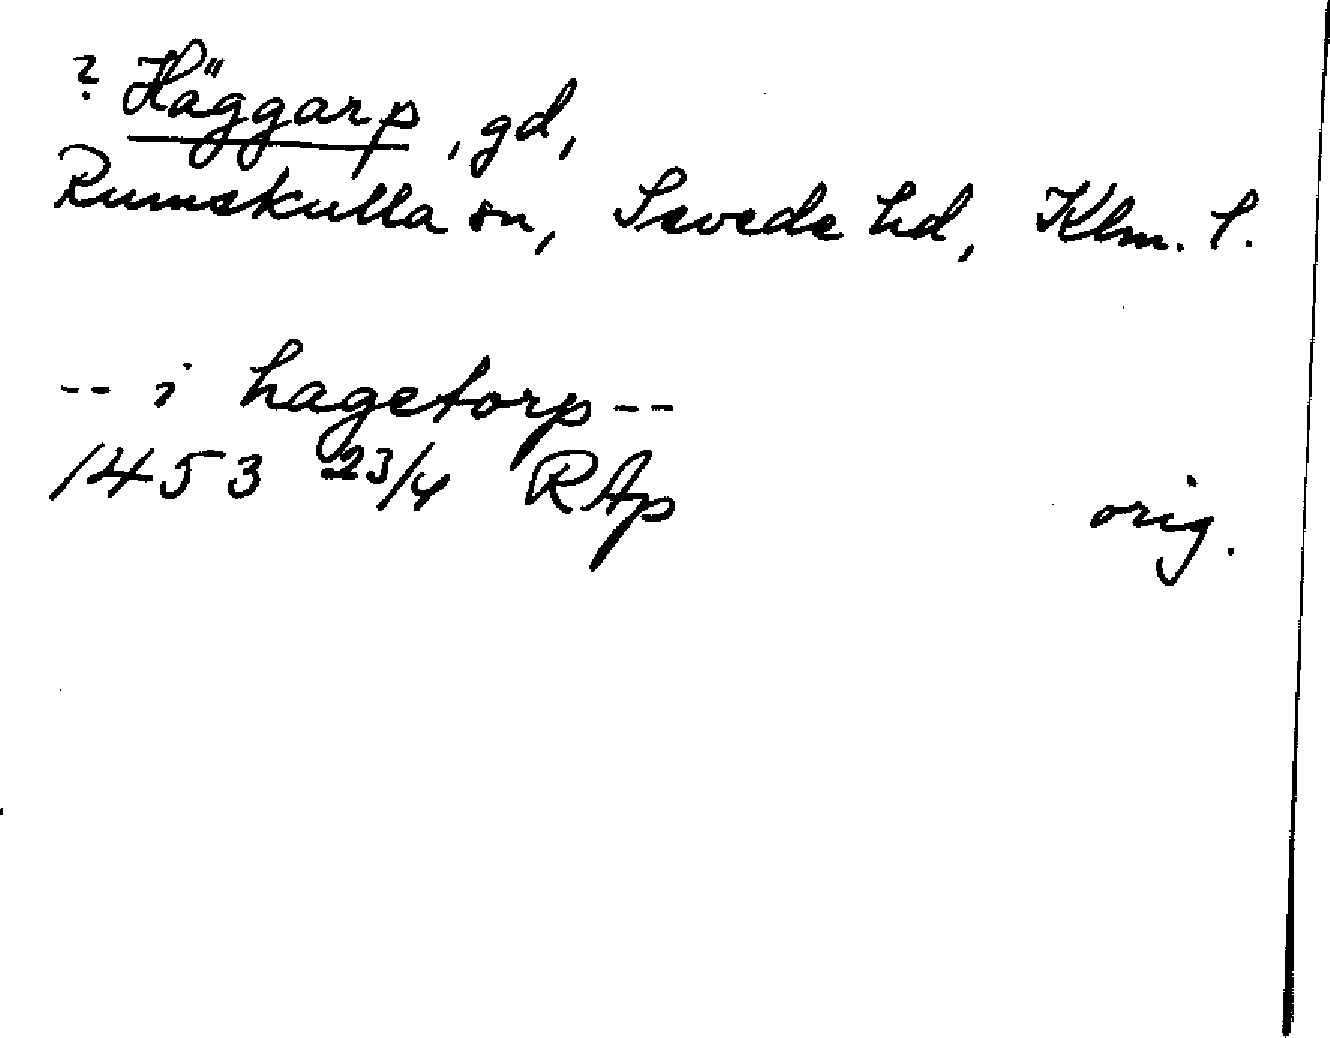 ? Häggarp, gd,
Rumskulla sn, Sevede hd, Klm. l.
-- i hagetorp --
1453 23/4 RAp orig.